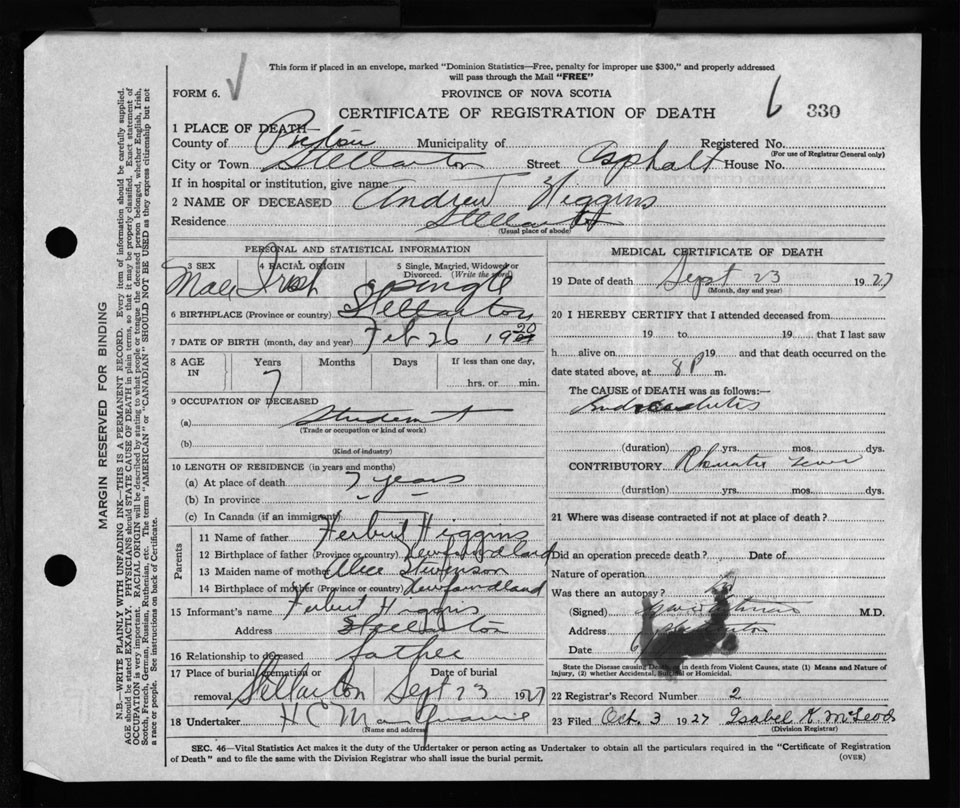 This form if placed in an envelope, marked "Dominion Statistics—Free, penalty for improper use $300," and properly addressed
will pass through the Mail "FREE"
FORM 6. PROVINCE OF NOVA SCOTIA
CERTIFICATE OF REGISTRATION OF DEATH 6 330
1 PLACE OF DEATH—
County of Pictou Municipality of Registered No.
(For use of Registrar General only)
City or Town Stellarton Street Asphalt House No.
If in hospital or institution, give name
2 NAME OF DECEASED Andrew Higgins
Residence Stellarton
(Usual place of abode)
PERSONAL AND STATISTICAL INFORMATION
3 SEX 4 RACIAL ORIGIN 5 Single, Married, Widowed or Divorced. (Write the word)
Male Irish Single
6 BIRTHPLACE (Province or country) Stellarton
7 DATE OF BIRTH (month, day and year) Feb 26 1920
8 AGE IN Years Months Days If less than one day,
7 hrs. or min.
9 OCCUPATION OF DECEASED
(a) Student
(Trade or occupation or kind of work)
(b)
(Kind of industry)
10 LENGTH OF RESIDENCE (in years and months)
(a) At place of death 7 years
(b) In province " "
(c) In Canada (if an immigrant)
Parents
11 Name of father Herbert Higgins
12 Birthplace of father (Province or country) Newfoundland
13 Maiden name of mother Alice Stevenson
14 Birthplace of mother (Province or country) Newfoundland
15 Informant's name Herbert Higgins
Address Stellarton
16 Relationship to deceased father
17 Place of burial, cremation or Date of burial
removal Stellarton Sept 23 1927
18 Undertaker H C
(Name and address)
MEDICAL CERTIFICATE OF DEATH
19 Date of death Sept 23 1927
(Month, day and year)
20 I HEREBY CERTIFY that I attended deceased from
19 to 19 that I last saw
h alive on 19 and that death occurred on
date stated above, at 8 P m.
The CAUSE of DEATH was as follows:—
Endocarditis
(duration) yrs. mos. dys.
CONTRIBUTORY Rheumatic fever
(duration) yrs. mos. dys.
21 Where was disease contracted if not at place of death?
Did an operation precede death? Date of
Nature of operation
Was there an autopsy?
(Signed) M.D.
Address Stellarton
Date
State the Disease causing Death, or in death from Violent Causes, state (1) Means and Nature of
Injury, (2) whether Accidental, Suicidal or Homicidal.
22 Registrar's Record Number 2
23 Filed Oct. 3 1927 Isabel K. McLeod
(Division Registrar)
SEC. 46—Vital Statistics Act makes it the duty of the Undertaker or person acting as Undertaker to obtain all the particulars required in the "Certificate of Registration
of Death" and to file the same with the Division Registrar who shall issue the burial permit. (OVER)
MARGIN RESERVED FOR BINDING
N.B.—WRITE PLAINLY WITH UNFADING INK—THIS IS A PERMANENT RECORD. Every item of information should be carefully supplied.
AGE should be stated EXACTLY. PHYSICIANS should STATE CAUSE OF DEATH in plain terms, so that it may be properly classified. Exact statement of
OCCUPATION is very important. RACIAL ORIGIN will be described by stating to what people or tongue the deceased person belonged, whether English, Irish,
Scotch, French, German, Russian, Ruthenian, etc. The terms "AMERICAN" or "CANADIAN" SHOULD NOT BE USED as they express citizenship but not
a race or people. See instructions on back of Certificate.